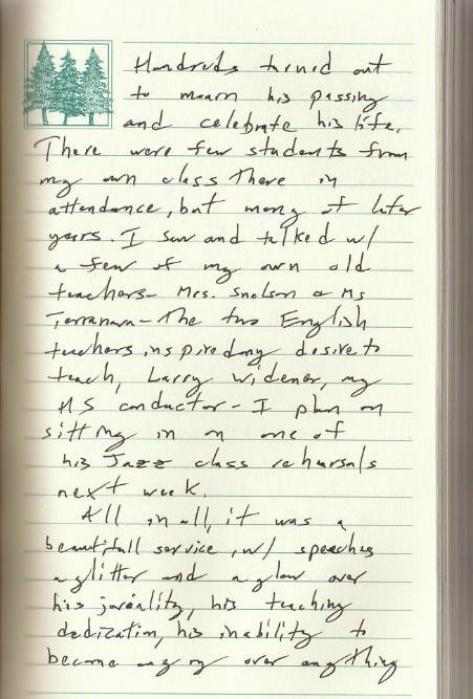 Hundreds turned out
to mourn his passing
and celebrate his life.
There were few students from
my own class there in
attendance, but many of later
years. I saw and talked w/
a few of my own old
teachers- Mrs. Snelson & Ms
- The two English
teachers inspired my desire to
teach, Larry Widener, my
HS conductor - I plan on
sitting in on one of
his Jazz class rehursals
next week.
All in all, it was a
beautifull service, w/ speeches
aglitter and aglow over
his joviality, his teaching
dedication, his inability to
become angry over anything